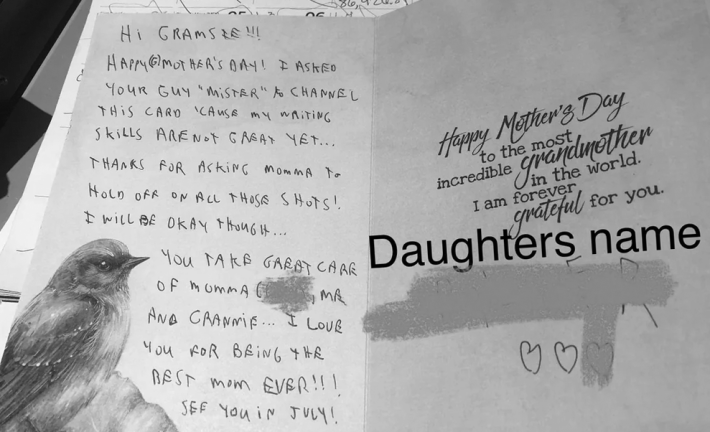 86,926.0
05
06
Hi GRAMSIE!!!
HAPPY(G)MOTHER'S DAY! I ASKED
YOUR GUY "MISTER" to CHANNEL
THIS CARD 'CAUSE MY WRITING
SKILLS ARE NOT GREAT YET...
THANKS FOR ASKING MOMMA TO
HOLD OFF ON ALL THOSE SHOTS!
I WILL BE OKAY THOUGH...
YOU TAKE GREAT CARE
OF MOMMA , ME
AND GRANNIE... I LOVE
YOU FOR BEING THE
BEST MOM EVER!!!
SEE YOU IN JULY!
Happy Mother's Day
to the most
incredible grandmother
in the world.
I am forever
grateful for you.
Daughters name